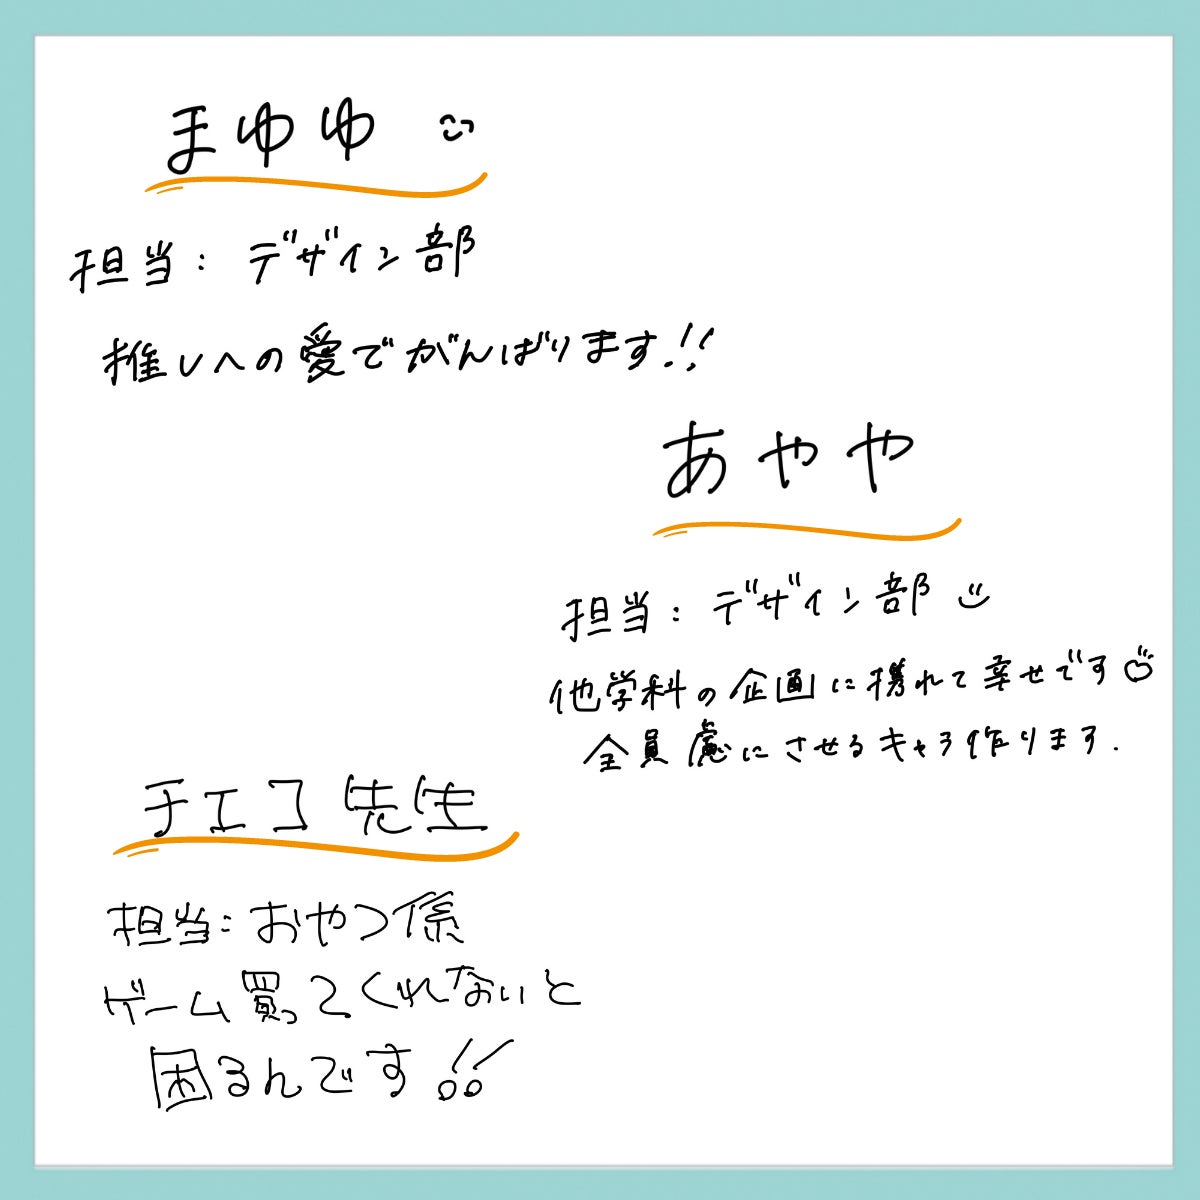 まゆゆ
担当：デザイン部
推しへの愛でがんばります!!
あやや
担当：デザイン部
他学科の企画に携れて幸せです
全員 にさせるキャラ作ります.
チエコ先生
担当：おやつ係
ゲーム買ってくれないと
困るんです!!